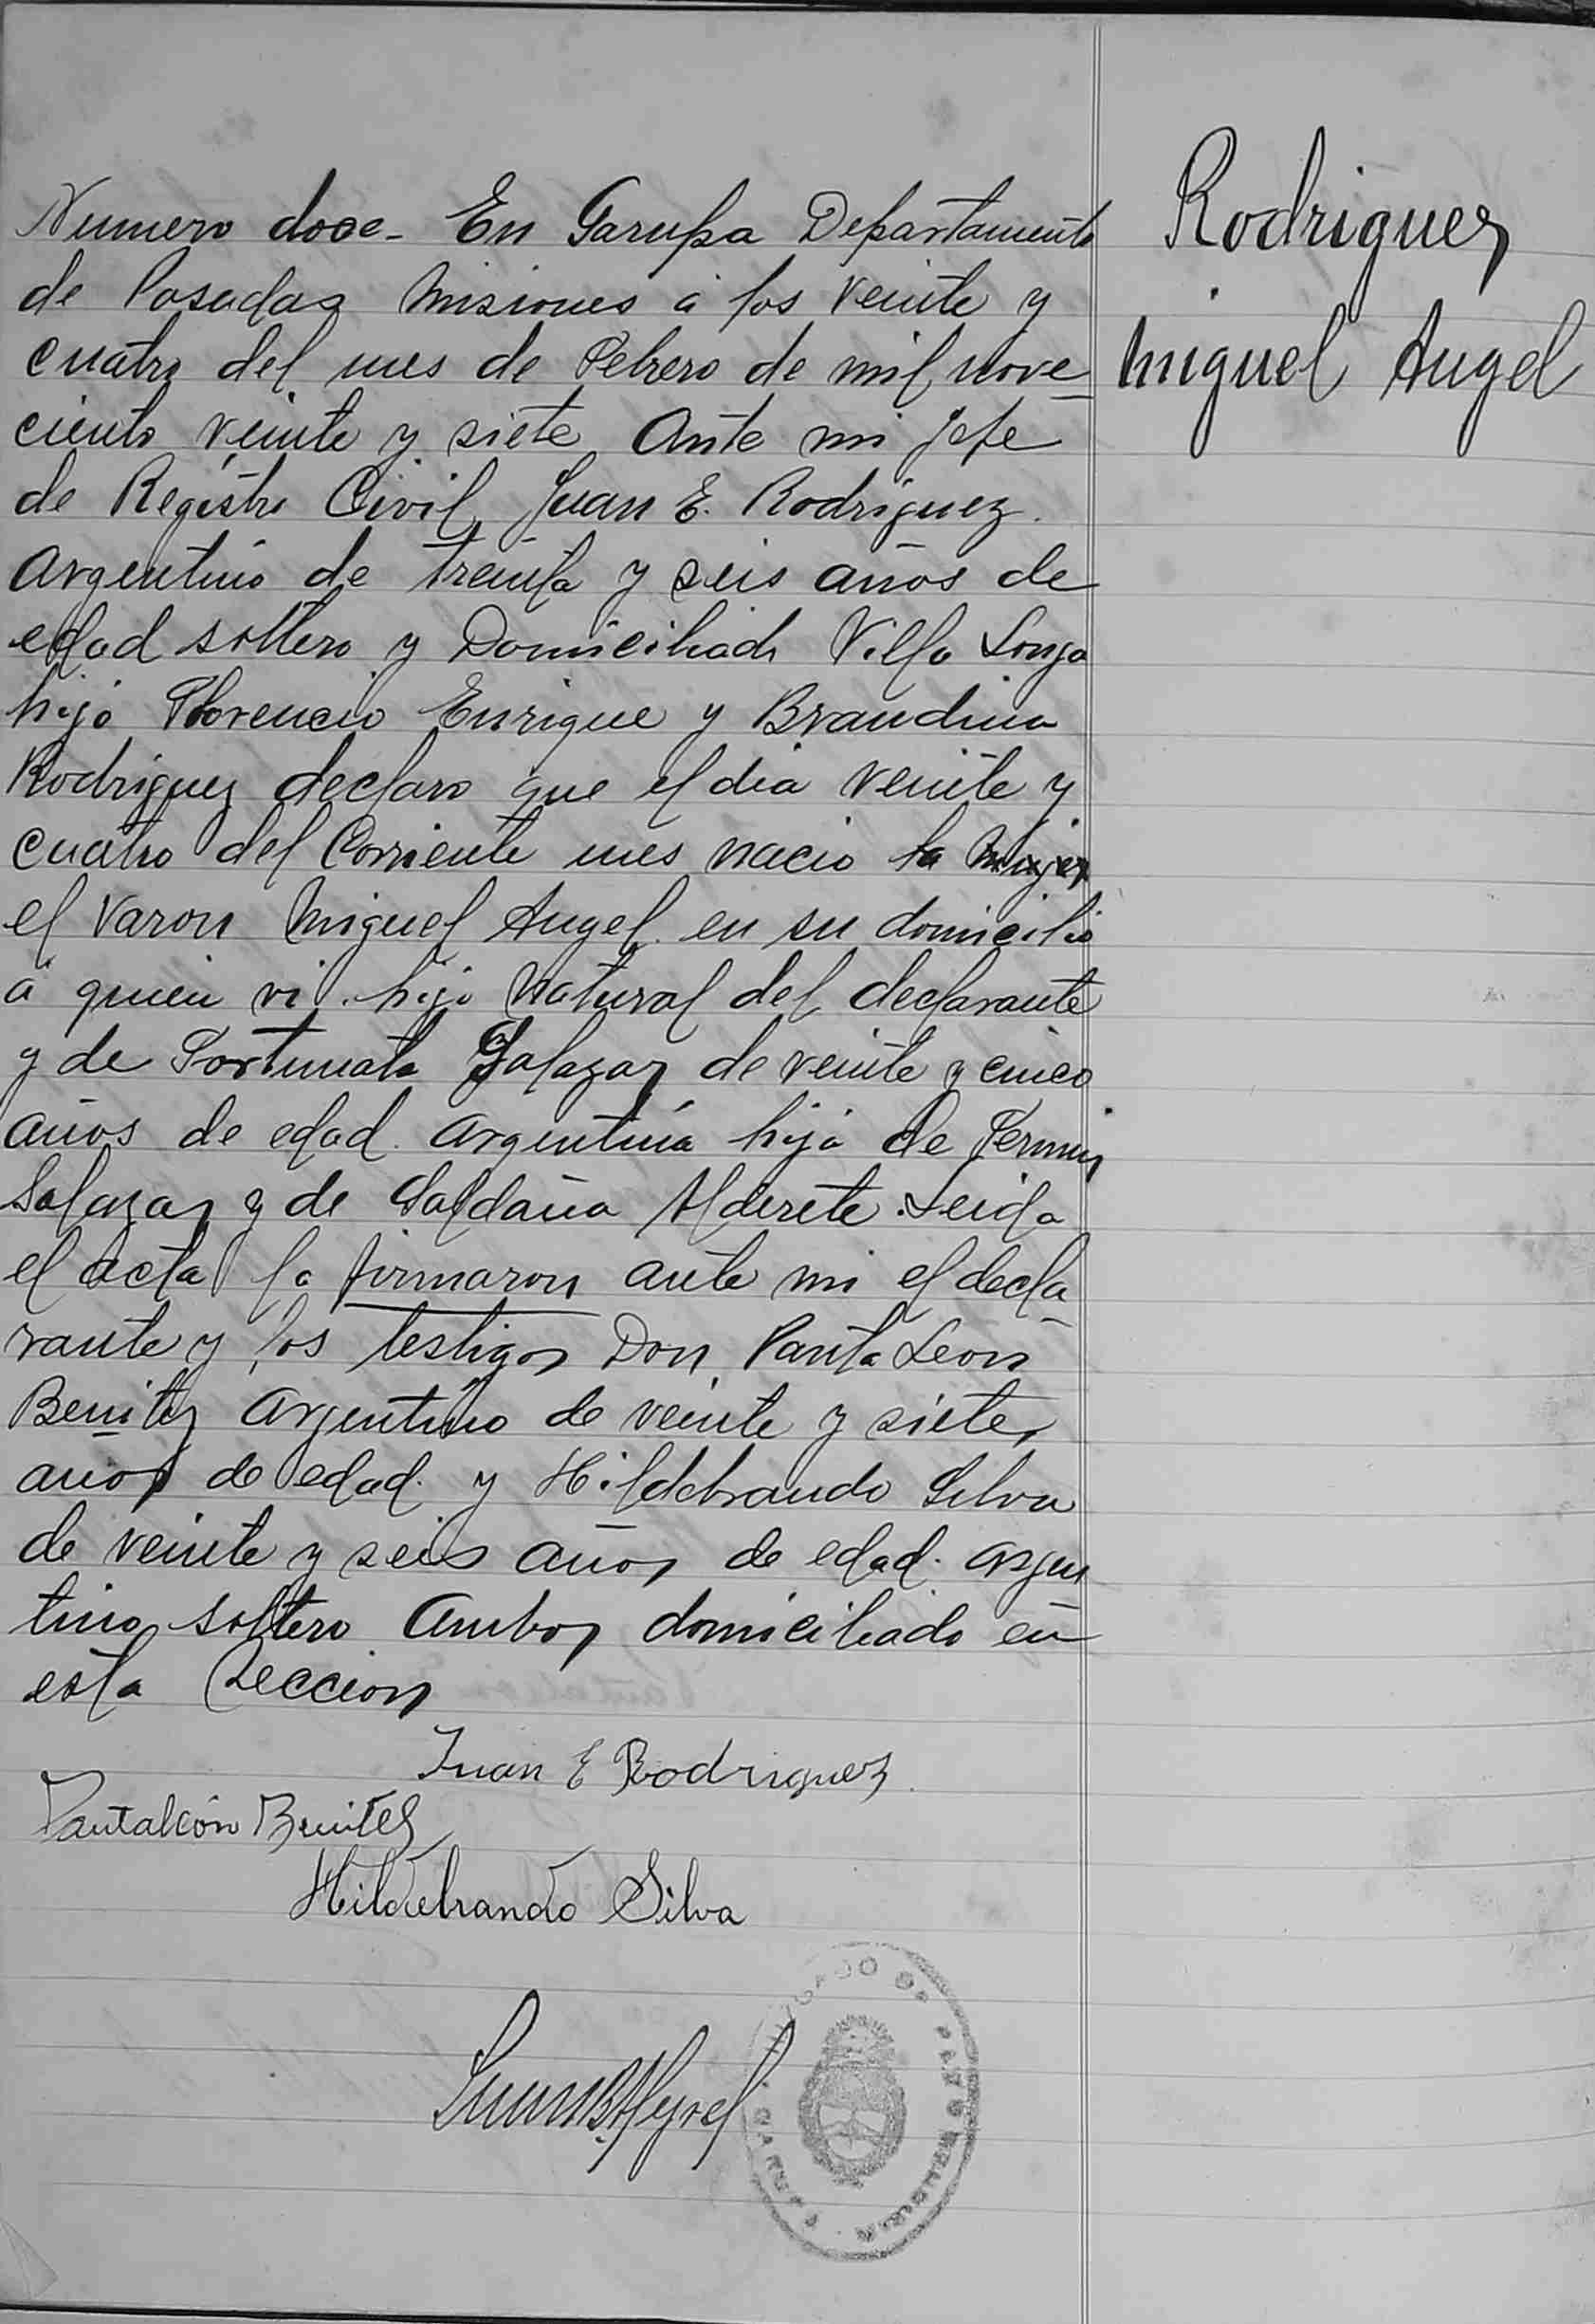 Numero doce - En Garupa Departamento
de Posadas Misiones á los veinte y
cuatro del mes de Febrero de mil nove-
ciento veinte y siete Ante mi jefe
de Registro Civil, Juan E. Rodriguez.
Argentino de treinta y seis años de
edad soltero y Domiciliado Villa Longa
hijo Florencio Enrique y Brandina
Rodriguez declaro que el dia veinte y
cuatro del Corriente mes nacio la Mujer
el Varon Miguel Angel en su domicilio
á quien vi. hijo Natural del declarante
y de Fortunata Salazar de veinte y cinco
años de edad. Argentina hija de Fermin
Salazar y de Saldaña Alderete. Leida
el acta la firmaron ante mi el decla-
rante y los testigos Don Panta Leon
Benitez Argentino de veinte y siete
años de edad. y Hildebrando Silva
de veinte y seis años de edad. argen
tino soltero Ambos domiciliado en
esta Seccion
Juan E Rodriguez
Pantaleón Benitez
Hildebrando Silva
Rodriguez
Miguel Angel
JUZGADO DE PAZ
GARUPA